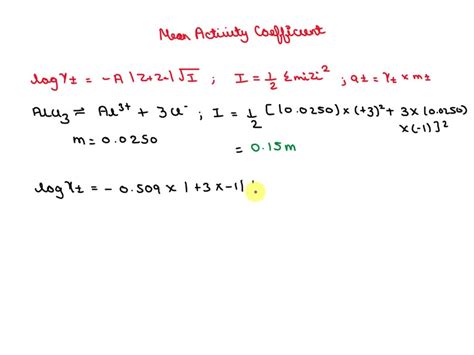 Mean Activity Coefficient
log γ± = -A |Z+Z-| √I ; I = 1/2 Σmizi² ; a± = γ± × m±
AlCl3 ⇌ Al³⁺ + 3Cl⁻ ; I = 1/2 [(0.0250) × (+3)² + 3 × (0.0250) × (-1)]²
m = 0.0250
= 0.15m
log γ± = - 0.509 × | +3 × -1|